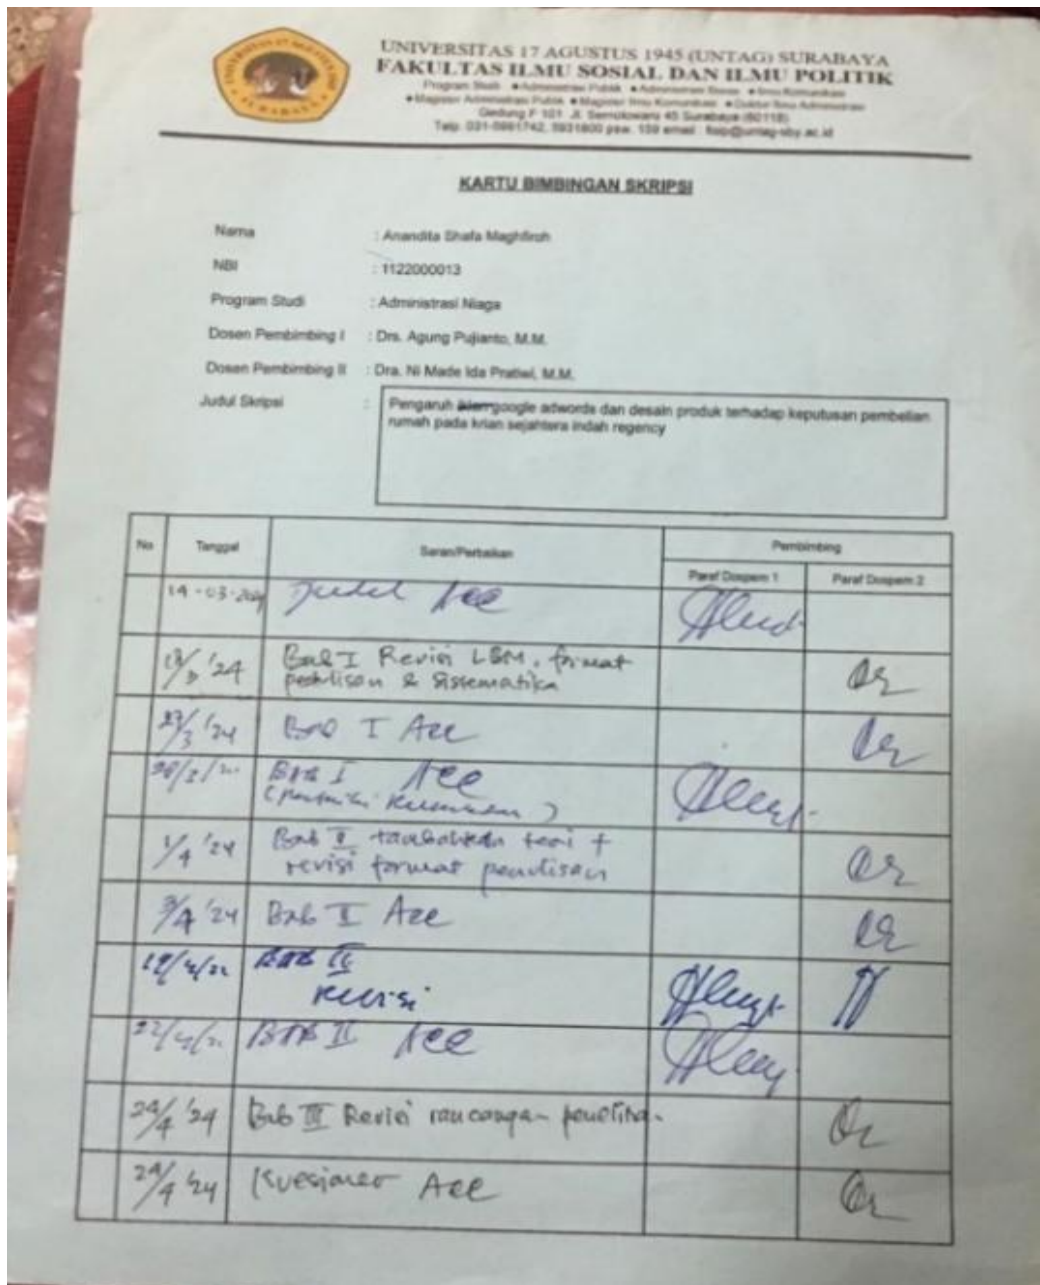 UNIVERSITAS 17 AGUSTUS 1945 (UNTAG) SURABAYA
FAKULTAS ILMU SOSIAL DAN ILMU POLITIK
Program Studi • Administrasi Publik • Administrasi Bisnis • Ilmu Komunikasi
• Magister Administrasi Publik • Magister Ilmu Komunikasi • Doktor Ilmu Administrasi
Gedung F 101 Jl. Semolowaru 45 Surabaya (60118)
Telp. 031-5981742, 5931800 psw. 159 email : fisip@untag-sby.ac.id
KARTU BIMBINGAN SKRIPSI
Nama : Anandita Shafa Maghfiroh
NBI : 1122000013
Program Studi : Administrasi Niaga
Dosen Pembimbing I : Drs. Agung Pujianto, M.M.
Dosen Pembimbing II : Dra. Ni Made Ida Pratiwi, M.M.
Judul Skripsi : Pengaruh google adwords dan desain produk terhadap keputusan pembelian
rumah pada krian sejahtera indah regency
No Tanggal Saran/Perbaikan Pembimbing
Paraf Dospem 1 Paraf Dospem 2
14-03-2024 Judul Acc
/3 '24 Bab I Revisi LBM, format
penulisan & Sistematika
27/3 '24 Bab I Acc
Bab I Acc
1/4 '24 Bab II teori +
revisi format penulisan
3/4 '24 Bab II Acc
BAB II
Revisi
22/4 BAB II Acc
24/4 '24 Bab III Revisi rancangan
24/4 '24 Kuesioner Acc